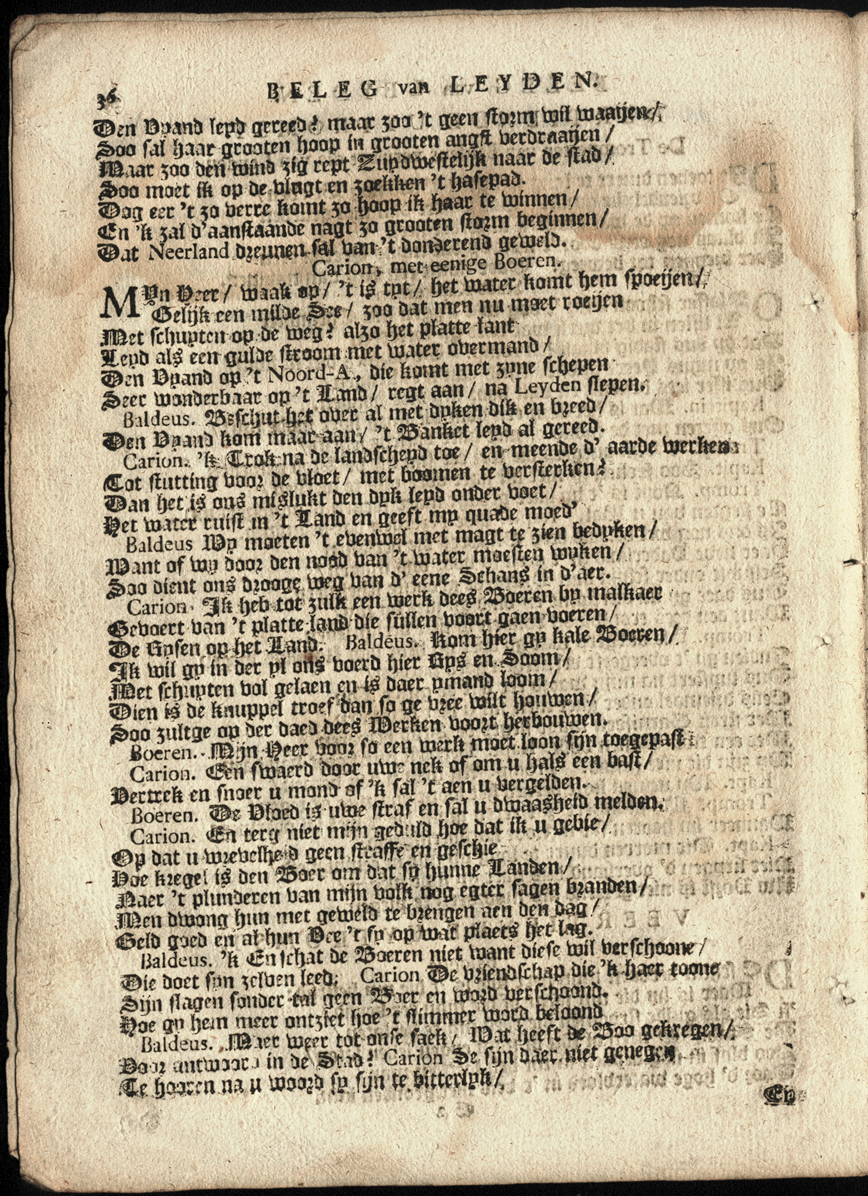 36 BELEG van LEYDEN.
Den Vyand leyd gereed? maar zoo 't geen storm wil waaijen/
Soo sal haar grooten hoop in grooten angst verdraaijen/
Maar zoo den wind zig rept Zuydwestelijk naar de stad/
Soo moet ik op de vlugt en zoekken 't hasepad.
Dog eer 't zo verre komt zo hoop ik haar te winnen/
En 'k zal d'aanstaande nagt zo grooten storm beginnen/
Dat Neerland dreunen sal van 't donderend geweld.
Carion, met eenige Boeren.
MYn Heer/ waak op/ 't is tyt/ het water komt hem spoeijen/
Gelijk een milde See/ zoo dat men nu moet roeijen
Met schuyten op de weg? alzo het platte lant
Leyd als een gulde stroom met water overmand/
Den Vyand op 't Noord-A, die komt met zyne schepen
Seer wonderbaar op 't Land/ regt aan/ na Leyden slepen.
Baldeus. Beschut het over al met dyken dik en breed/
Den Vyand kom maar aan/ 't Banket leyd al gereed.
Carion. 'k Trok na de landscheyd toe/ en meende d' aarde werken
Tot stutting voor de vloet/ met boomen te versterken?
Dan het is ons mislukt den dyk leyd onder voet/
Het water ruist in 't Land en geeft my quade moed'
Baldeus Wy moeten 't evenwel met magt te zien bedyken/
Want of wy door den nood van 't water moesten wyken/
Soo dient ons drooge weg van d' eene Schans in d'aer.
Carion. Ik heb tot zulk een werk dees Boeren by malkaer
Gevoert van 't platte land die sullen voort gaen voeren/
De Rysen op het Land. Baldeus. Kom hier gy kale Boeren/
Ik wil gy in der yl ons voerd hier Rys en Soom/
Met schuyten vol gelaen en is daer ymand loom/
Dien is de knuppel troef dan so ge vree wilt houwen/
Soo zultge op der daed dees Werken voort herbouwen.
Boeren. Mijn Heer voor so een werk moet loon sijn toegepast
Carion. Een swaerd door uwe nek of om u hals een bast/
Vertrek en snoer u mond of 'k sal 't aen u vergelden.
Boeren. De Vloed is uwe straf en sal u dwaasheid melden.
Carion. En terg niet mijn geduld hoe dat ik u gebie/
Op dat u wrevelheid geen straffe en geschie
Hoe kregel is den Boer om dat sy hunne Landen/
Naer 't plunderen van mijn volk nog egter sagen branden/
Men dwong hun met geweld te brengen aen den dag/
Geld goed en al hun Vee 't sy op wat plaets het lag.
Baldeus. 'k En schat de Boeren niet want diese wil verschoone/
Die doet sijn zelven leed; Carion De vriendschap die 'k haer toone
Sijn slagen sonder tal geen Boer en word verschoond.
Hoe gy hem meer ontziet hoe 't slimmer word beloond
Baldeus. Maer weer tot onse saek/ Wat heeft de Boo gekregen/
Voor antwoord in de Stad? Carion Se sijn daer niet genegen
Te hooren na u woord sy sijn te bitterlyk/
En